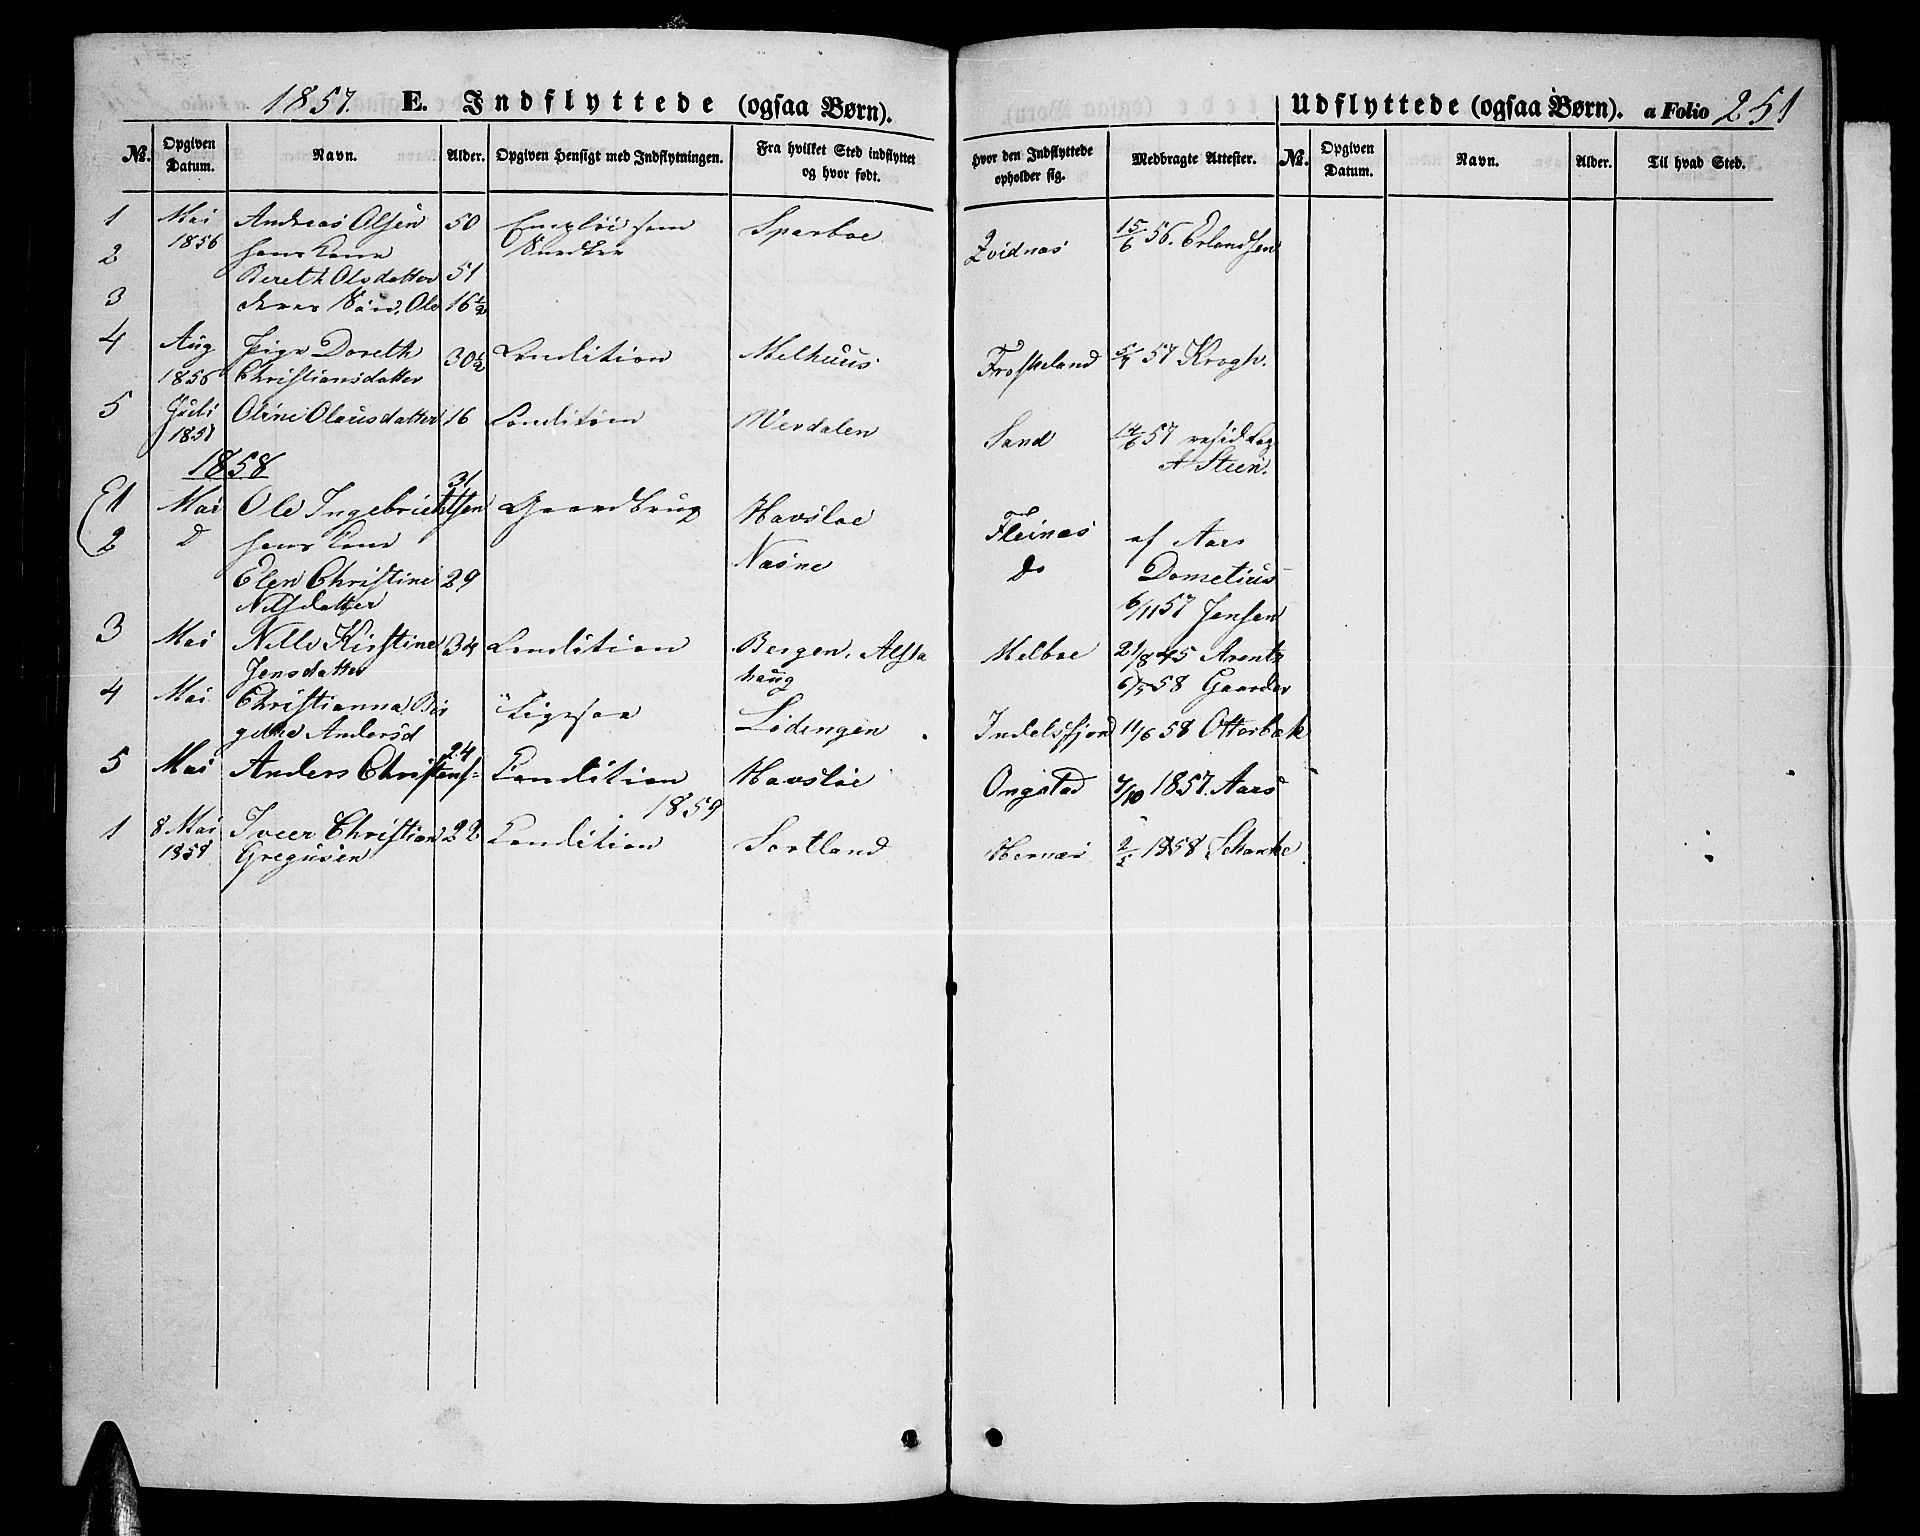 1857. E. Indflyttede (ogsaa Børn). Udflyttede (ogsaa Børn). a Folio 251
No. Opgiven Datum. Navn. Alder. Opgiven Hensigt med Indflytningen. Fra hvilket Sted indflyttet og hvor født. Hvor den Indflyttede opholder sig. Medbragte Attester. No. Opgiven Datum. Navn. Alder. Til hvad Sted.
1 Mai Andreas Olsen 50 som Sparboe Qvidnæs 15/6 56. Erlandsen
2 1856 hans Kone Snedker
Bereth Olsdatter 51
3 deres Søn, Ole 16 1/2
4 Aug Pige Doreth 30 1/2 Condition Melhuus Froskeland 57 Krogh.
1856 Christiansdatter
5 Juli Oline Olausdatter 16 Condition Werdalen Sand 14/6 57 resid Cap
1857 A Steen.
1858
1 Mai Ole Ingebrichtsen 31 Gaardbrug Havsloe Fleinæs af Aars
2 D hans Kone Næsne Do Dometius
Elen Christine 29
Nilsdatter 6/11 57 Jensen
3 Mai Nille Kirstine 34 Condition Bergen, Alsta Melboe 21/8 45 Arentz
Jensdatter haug 6/5 58 Gaarder
4 Mai Christianna Bir Ligesaa Lødingen Indelsfjord 11/6 58 Otterbek
gethe Andersd
5 Mai Anders Christens: 24 Condition Havsløe Ongstad 1857. Aars
1859
1 8 Mai Iver Christian 22 Condition Sortland Hernæs 1858 Schancke
Gregusen